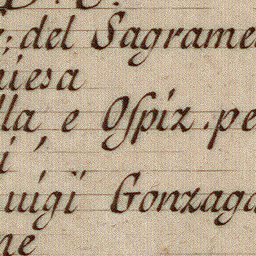 del Sagrame
iesa
lla, e Oſpiz. pe
i,
uigi Gonzaga
ne